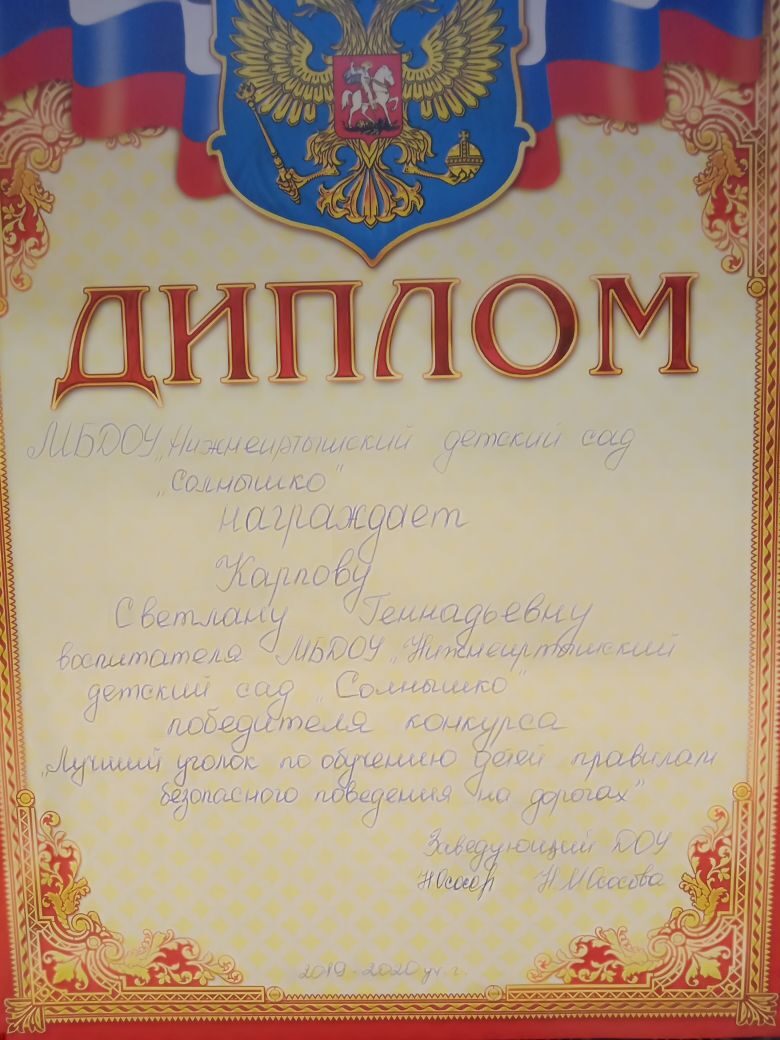 ДИПЛОМ
МБДОУ „Нижнеиртышский детский сад
„Солнышко"
награждает
Карпову
Светлану Геннадьевну
воспитателя МБДОУ „Нижнеиртышский
детский сад „Солнышко"
победителя конкурса
„Лучший уголок по обучению детей правилам
безопасного поведения на дорогах"
Заведующий ДОУ
2019-2020 уч. г.